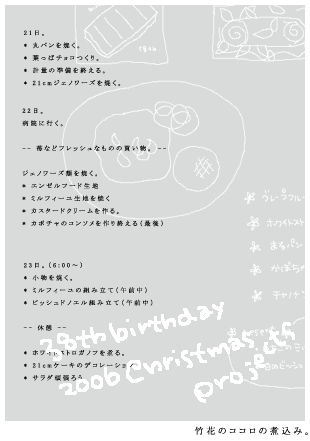 21日。
* 丸パンを焼く。
* 葉っぱチョコつくり。
* 計量の準備を終える。
* 21cmジェノワーズを焼く。
22日。
病院に行く。
-- 苺などフレッシュなものの買い物。 --
ジェノワーズ類を焼く。
* エンゼルフード生地
* ミルフィーユ生地を焼く
* カスタードクリームを作る。
* カボチャのコンソメを作り終える(最後)
23日。(6:00〜)
* 小物を焼く。
* ミルフィーユの組み立て(午前中)
* ビッシュドノエル組み立て(午前中)
-- 休憩 --
* ホワイトストロガノフを煮る。
* 21cmケーキのデコレーション
* サラダ頑張ろう
38th birthday
2006 Christmas
project
まるパン
かぼちゃ
竹花のココロの煮込み。